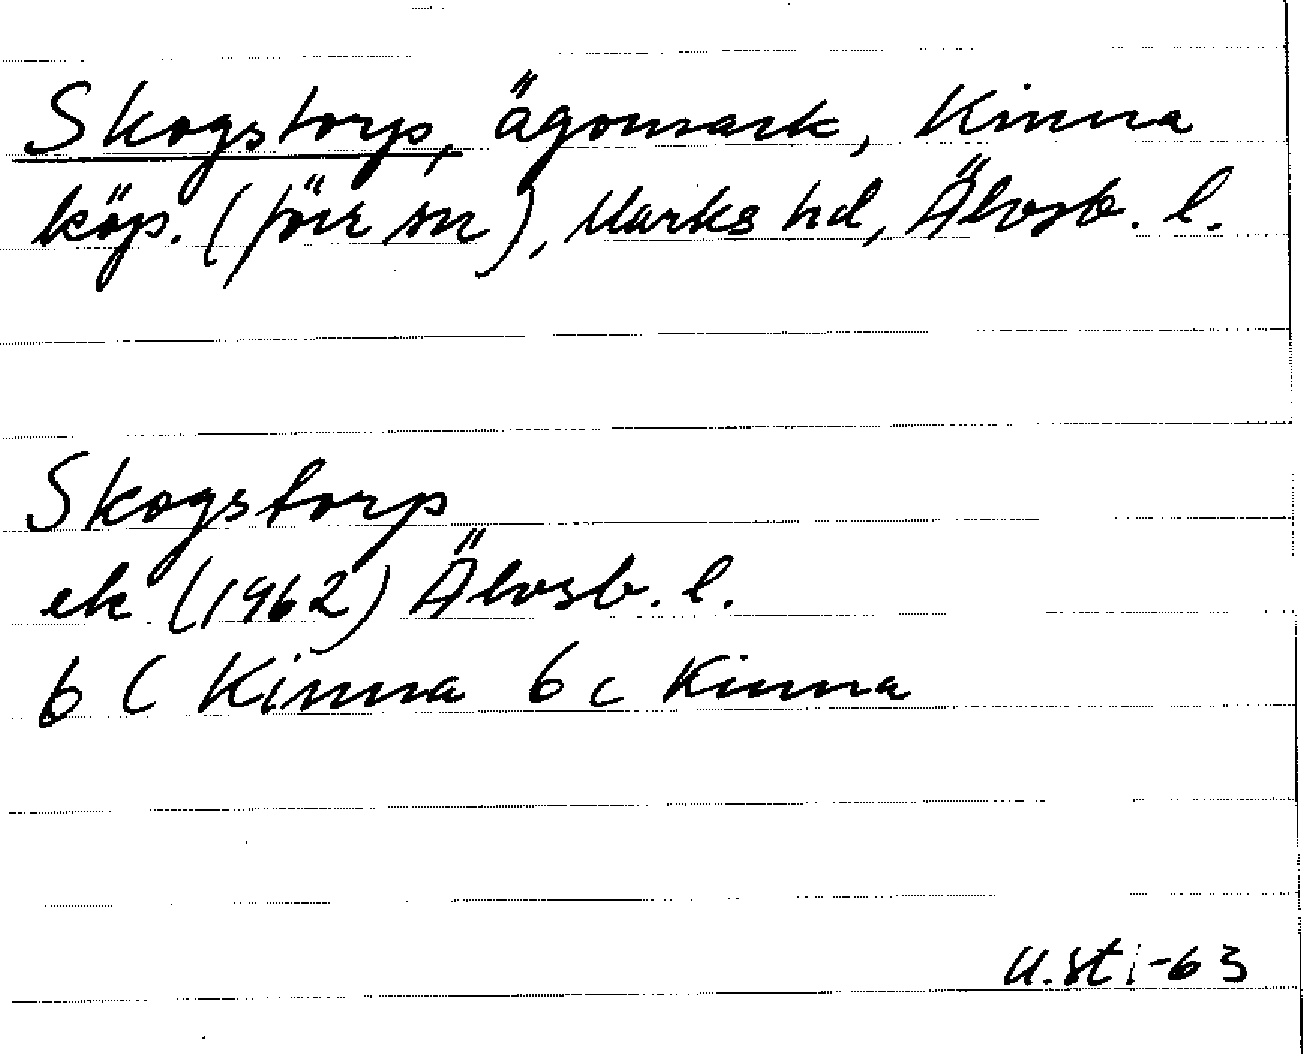 Skogstorp, ägomark, Kinna
köp. (förr sn), Marks hd, Älvsb. l.
Skogstorp
ek (1962) Älvsb. l.
6 C Kinna 6 c Kinna
U.St i -63